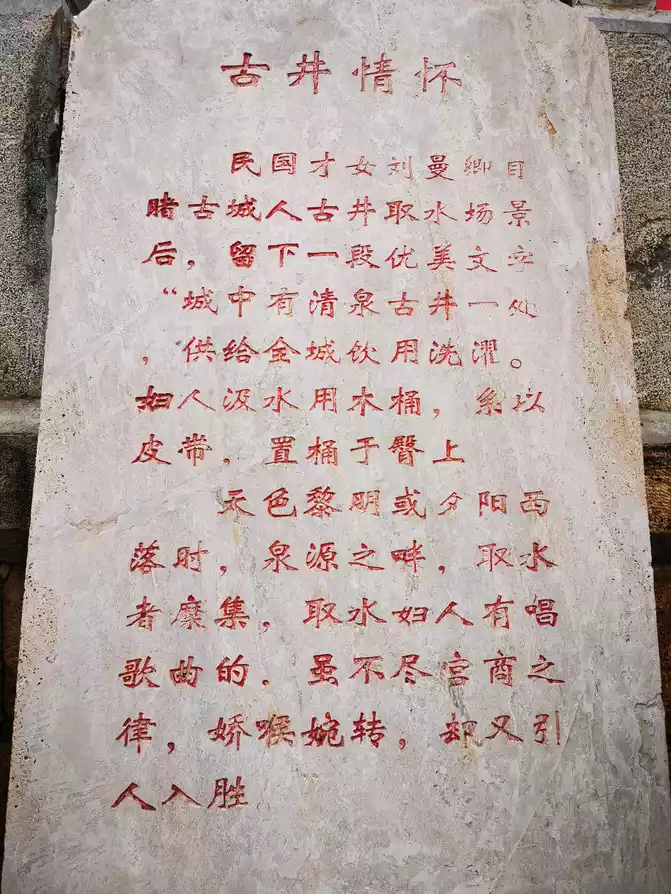 古井情怀
民国才女刘曼卿目
睹古城人古井取水场景
后，留下一段优美文字
“城中有清泉古井一处
，供给全城饮用洗濯。
妇人汲水用木桶，系以
皮带，置桶于臀上
天色黎明或夕阳西
落时，泉源之畔，取水
者糜集，取水妇人有唱
歌曲的，虽不尽宫商之
律，娇喉婉转，却又引
人入胜